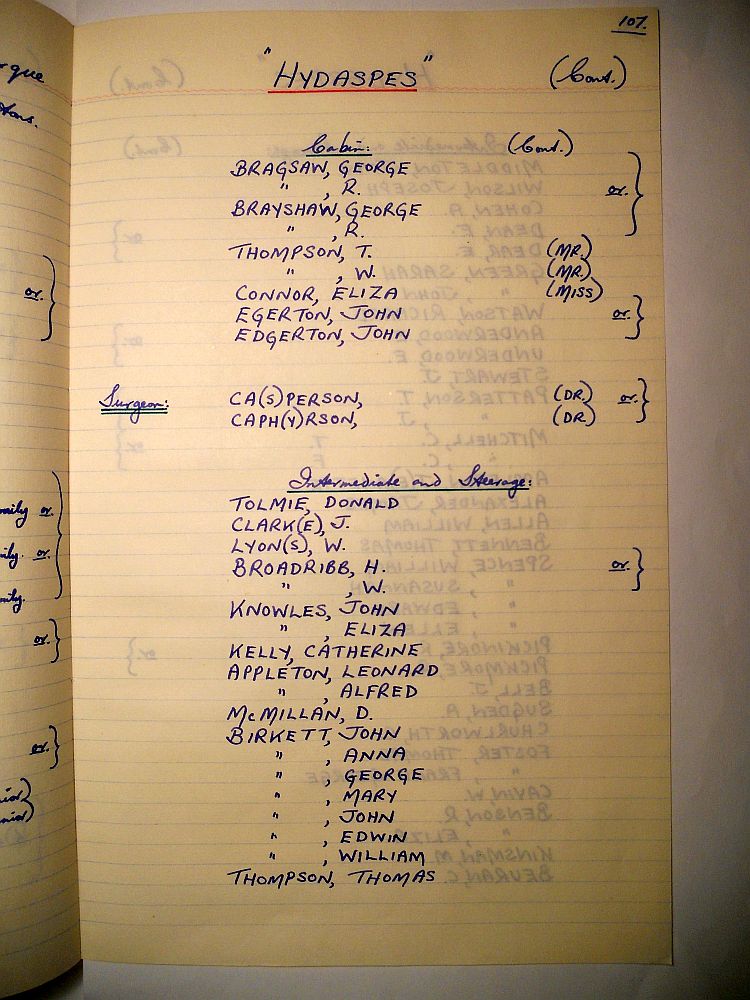 107.
"HYDASPES" (Cont.)
Cabin: (Cont.)
BRAGSAW, GEORGE
" , R. or.
BRAYSHAW, GEORGE
" , R.
THOMPSON, T. (MR.)
" , W. (MR.)
CONNOR, ELIZA (MISS)
EGERTON, JOHN or.
EDGERTON, JOHN
Surgeon: CA(S)PERSON, (DR.) or.
CAPH(Y)RSON, (DR.)
Intermediate and Steerage:
TOLMIE, DONALD
CLARK(E), J.
LYON(S), W.
BROADRIBB, H. or.
" , W.
KNOWLES, JOHN
" , ELIZA
KELLY, CATHERINE
APPLETON, LEONARD
" , ALFRED
McMILLAN, D.
BIRKETT, JOHN
" , ANNA
" , GEORGE
" , MARY
" , JOHN
" , EDWIN
" , WILLIAM
THOMPSON, THOMAS
or.
or.
or.
or.
or.